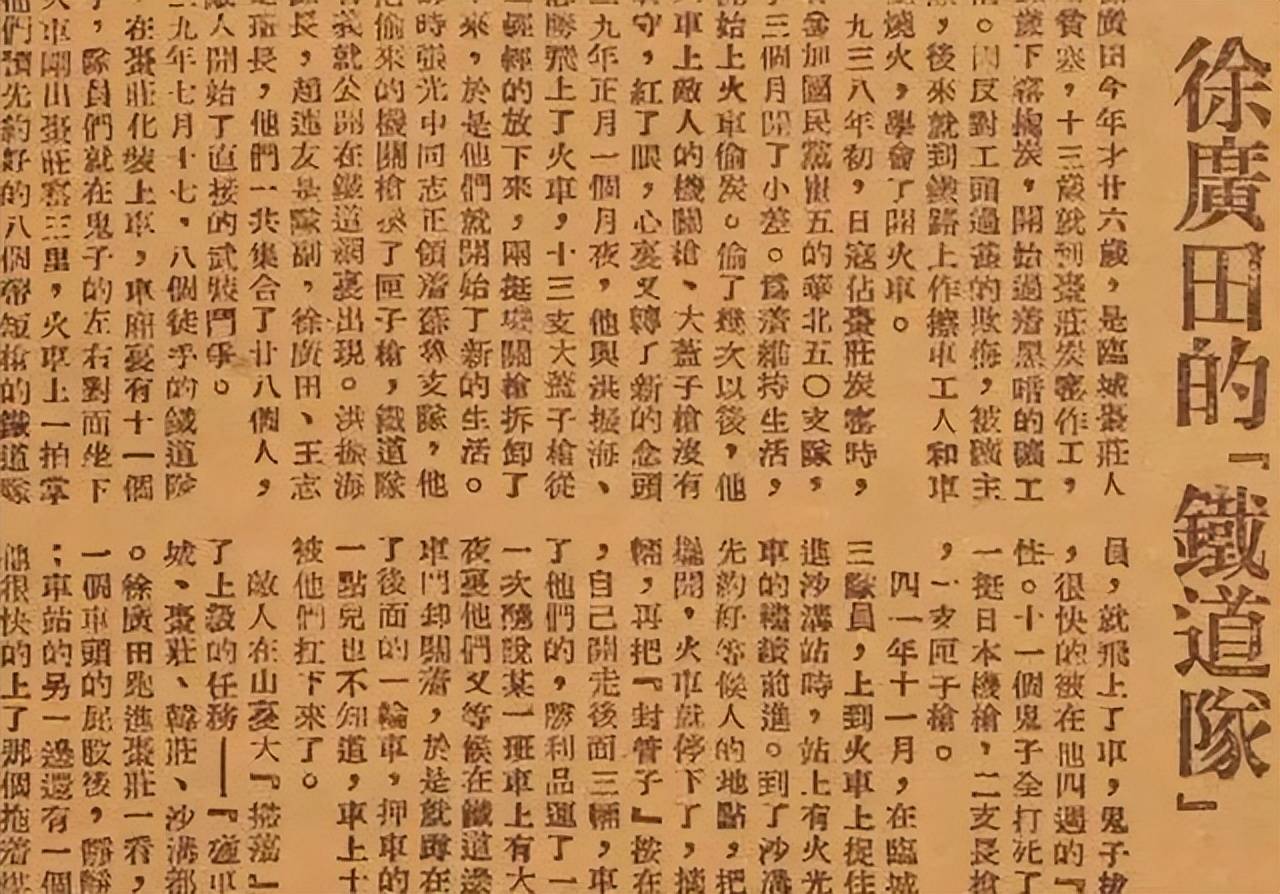 徐廣田的『鐵道隊』
廣田今年才廿六歲，是臨城棗莊人
貧寒，十三歲就到棗莊炭窰作工，
歲下窰掏炭，開始過着黑暗的礦工
。因反對工頭過甚的欺侮，被礦主
，後來就到鐵路上作擦車工人和車
燒火，學會了開火車。
九三八年初，日寇佔棗莊炭窰時，
參加國民黨 五的華北五〇支隊，
三個月開了小差。爲着維持生活，
始上火車偷炭。偷了幾次以後，他
車上敵人的機關槍、大蓋子槍沒有
守，紅了眼，心裏又轉了新的念頭
九年正月一個月夜，他與洪振海、
勝飛上了火車，十三支大蓋子槍從
輕輕的放下來，兩挺機關槍拆卸了
來，於是他們就開始了新的生活。
時張光中同志正領着蘇魯支隊，他
偷來的機關槍換了匣子槍，鐵道隊
義就公開在鐵道綫裏出現。洪振海
長，趙連友是隊副，徐廣田、王志
是班長，他們一共集合了廿八個人，
人開始了直接的武裝鬥爭。
九年七月十七，八個徒手的鐵道隊
在棗莊化裝上車，車廂裏有十一個
，隊員們就在鬼子的左右對面坐下
火車剛出棗莊窰三里，火車上一拍掌
他們預先約好的八個帶短槍的鐵道隊
員，就飛上了車，鬼子
，很快的被在他四週的『
性。十一個鬼子全打死了
一挺日本機槍，二支長槍
，一支匣子槍。
四一年十一月，在臨城
三隊員，上到火車上捉住
進沙溝站時，站上有火光
車的繼續前進。到了沙溝
先約好等候人的地點，把
開，火車就停下了，摘
輛，再把『封管子』按在
，自己開走後面三輛，車
了他們的，勝利品運了一
一次聽說某一班車上有大
夜裏他們又等候在鐵道邊
車門卸開着，於是就蹲在
了後面的一輪車，押車的
一點兒也不知道，車上十
被他們扛下來了。
敵人在山裏大『掃蕩』
了上級的任務——『
城、棗莊、韓莊、沙溝都
。徐廣田跑進棗莊一看，
一個車頭的屁股後，靜靜
；車站的另一邊還有一個
他很快的上了那個拖着煤